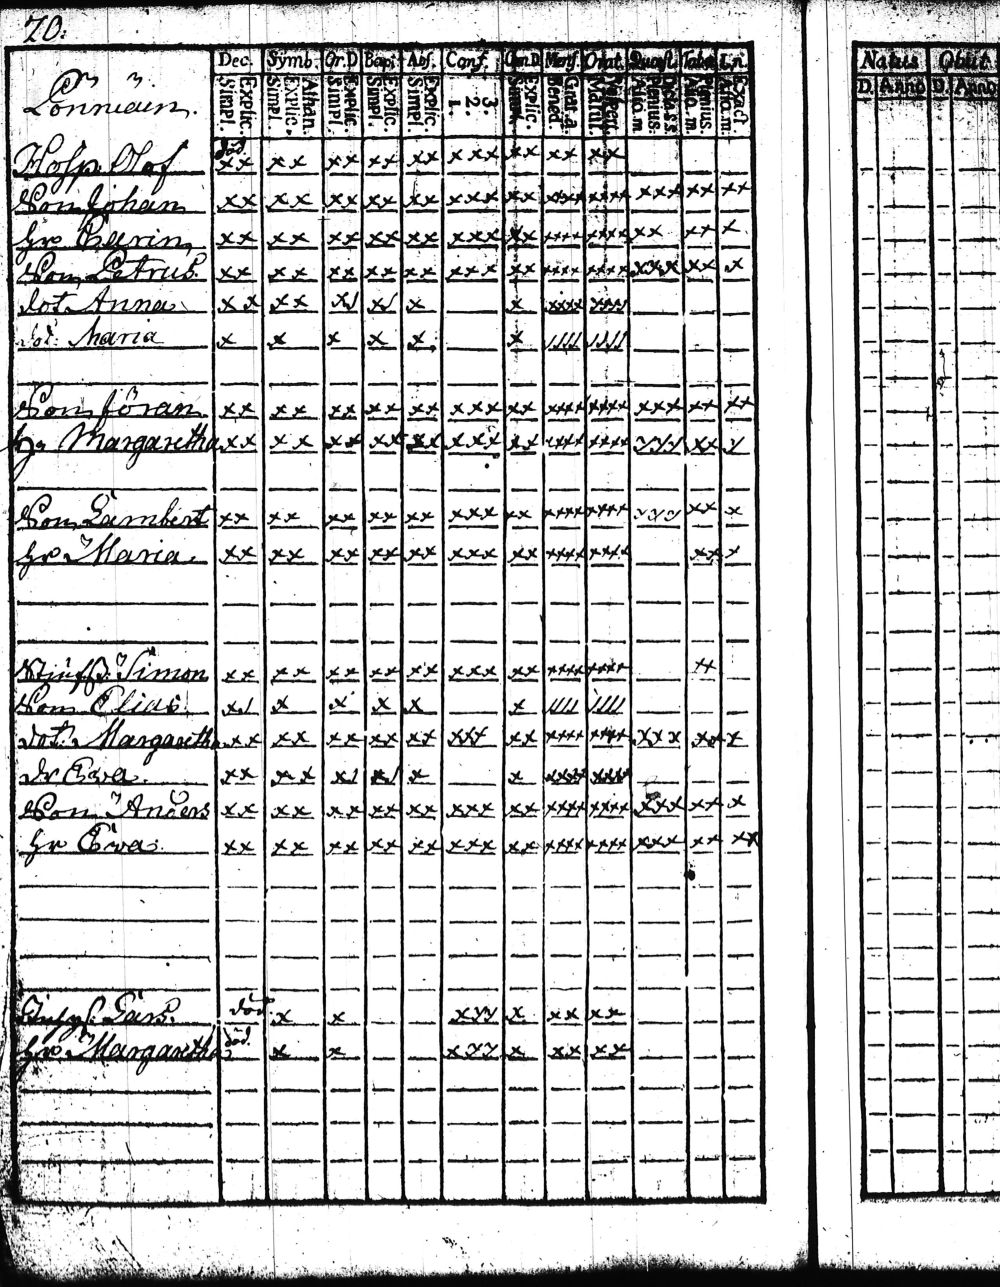 70.
Dec. Symb. Or.D Bapt. Abs. Conf. Cœn.D Mens. Orat. Quæst. Tabæ Ln. Natus Obiit
Simpl. Explic. Simpl. Explic. Athan. Simpl. Explic. Simpl. Explic. Simpl. Explic. 1. 2. 3. Simpl. Explic. Bened. Grat.a. Matut. Vesper. Aliq.m Plenius. Dicta s.s. Aliq.m Plenius. Aliq.m Exact. D. Anno D. Anno
Lönniäin.
Hosp. Olof död. xx xx xx xx xx xxx xx xx xx
Son Johan xx xx xx xx xx xxx xx xxxx xxxx xxx xx xx
hr Carin xx xx xx xx xx xxx xx xxxx xxxx xx xx x
Son Petrus xx xx xx xx xx xxx xx xxxx xxxx xxx xx x
dot. Anna xx xx x/ x/ x x xxxx xxxx
dot. Maria x x x x x x //// ////
Son Jöran xx xx xx xx xx xxx xx xxxx xxxx xxx xx xx
hr Margaretha xx xx xx xx xx xxx xx xxxx xxxx yyy xx y
Son Lambert xx xx xx xx xx xxx xx xxxx xxxx yyy xx x
hr Maria xx xx xx xx xx xxx xx xxxx xxxx xx x
Simon xx xx xx xx xx xxx xx xxxx xxxx xx
Son Elias x/ x x x x x //// ////
dot. Margaretha xx xx xx xx xx xxx xx xxxx xxxx xxx xx x
dr Ewa xx xx x/ x/ x x xxxx xxxx
Son Anders xx xx xx xx xx xxx xx xxxx xxxx xxx xx x
hr Ewa xx xx xx xx xx xxx xx xxxx xxxx xxx xx xx
Lars. död x x xyy x xx xx
hr Margaretha död. x x xyy x xx xx